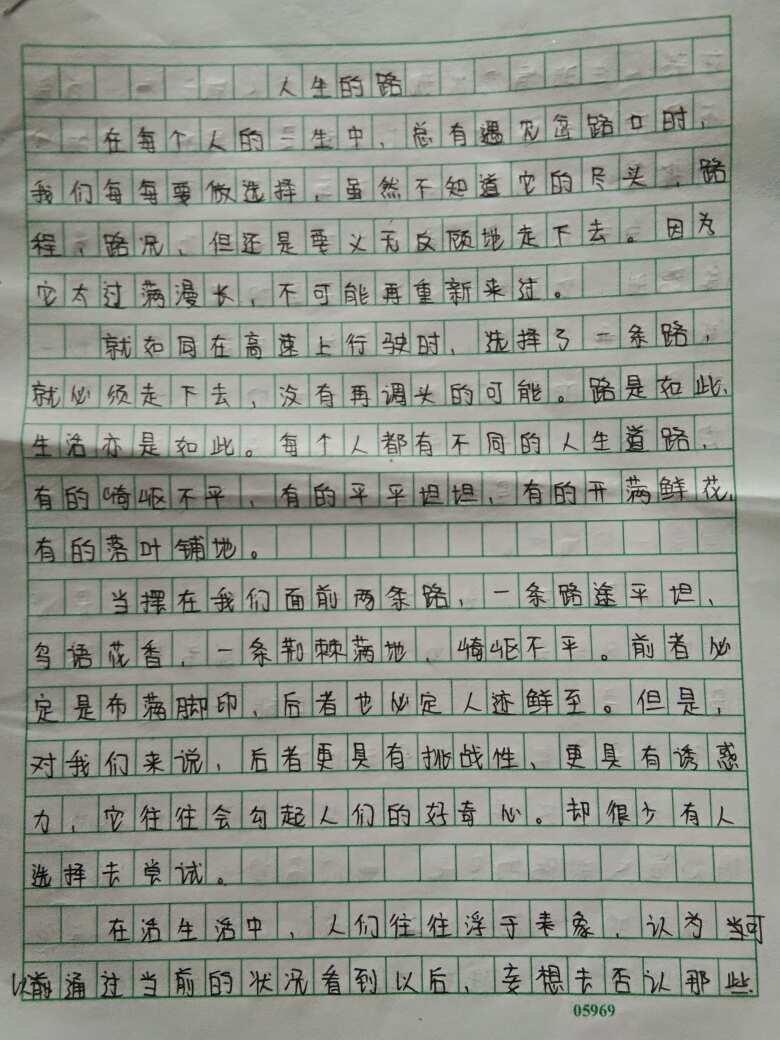 人生的路
在每个人的一生中，总有遇见岔路口时，
我们每每要做选择，虽然不知道它的尽头，路
程，路况，但还是要义无反顾地走下去。因为
它太过满漫长，不可能再重新来过。
就如同在高速上行驶时，选择了一条路，
就必须走下去，没有再调头的可能。路是如此，
生活亦是如此。每个人都有不同的人生道路，
有的崎岖不平，有的平平坦坦，有的开满鲜花，
有的落叶铺地。
当摆在我们面前两条路，一条路途平坦，
鸟语花香，一条荆棘满地，崎岖不平。前者必
定是布满脚印，后者也必定人迹鲜至。但是，
对我们来说，后者更具有挑战性，更具有诱惑
力，它往往会勾起人们的好奇心。却很少有人
选择去尝试。
在活生活中，人们往往浮于表象，认为当可
以前通过当前的状况看到以后，妄想去否认那些
05969